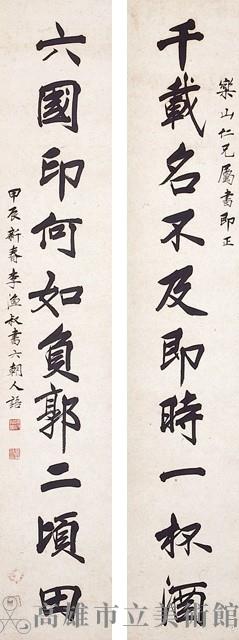 樂山仁兄屬書即正
千載名不及即時一杯酒
六國印何如負郭二頃田
甲辰新春李漁叔書六朝人語
高雄市立美術館